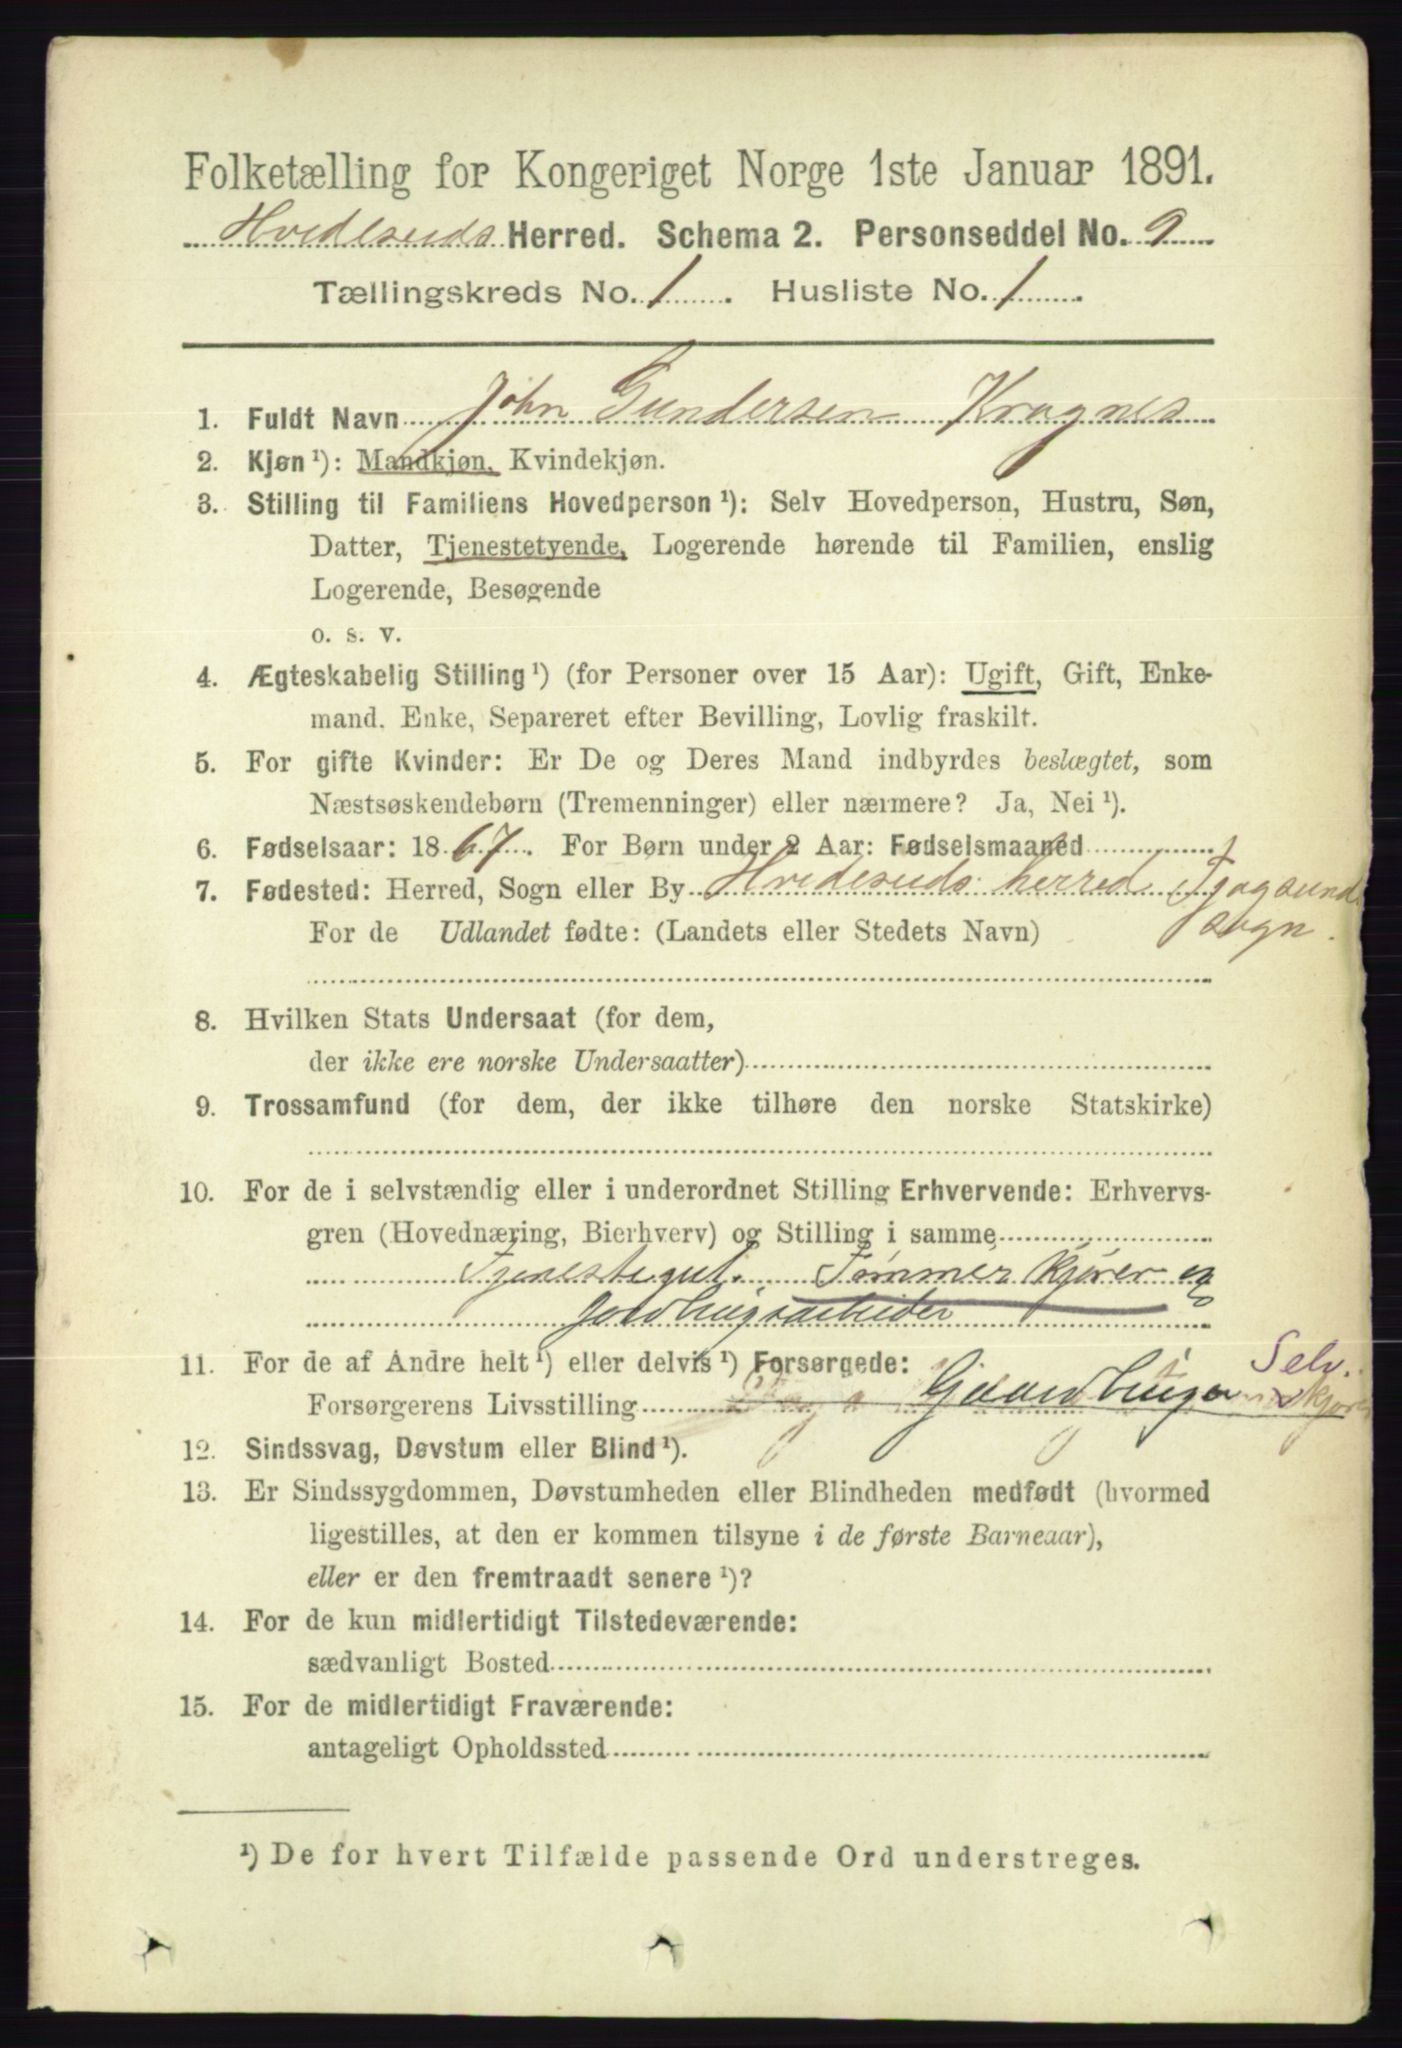 Folketælling for Kongeriget Norge 1ste Januar 1891.
Hvideseids Herred. Schema 2. Personseddel No. 9
Tællingskreds No. 1 . Husliste No. 1 .
1. Fuldt Navn John Gundersen Kragnes
2. Kjøn ¹): Mandkjøn, Kvindekjøn.
3. Stilling til Familiens Hovedperson ¹): Selv Hovedperson, Hustru, Søn,
Datter, Tjenestetyende, Logerende hørende til Familien, enslig
Logerende, Besøgende
o. s. v.
4. Ægteskabelig Stilling ¹) (for Personer over 15 Aar): Ugift, Gift, Enke-
mand, Enke, Separeret efter Bevilling, Lovlig fraskilt.
5. For gifte Kvinder: Er De og Deres Mand indbyrdes beslægtet, som
Næstsøskendebørn (Tremenninger) eller nærmere? Ja, Nei ¹).
6. Fødselsaar: 1867. For Børn under 2 Aar: Fødselsmaaned
7. Fødested: Herred, Sogn eller By Hvideseids herred
sogn.
For de Udlandet fødte: (Landets eller Stedets Navn)
8. Hvilken Stats Undersaat (for dem,
der ikke ere norske Undersaatter)
9. Trossamfund (for dem, der ikke tilhøre den norske Statskirke)
10. For de i selvstændig eller i underordnet Stilling Erhvervende: Erhvervs-
gren (Hovednæring, Bierhverv) og Stilling i samme
Tjenestegut. Tømmerkjører og
Jordbrugsarbeider
11. For de af Andre helt ¹) eller delvis ¹) Forsørgede: Selv.
Forsørgerens Livsstilling Gaardbruger
12. Sindssvag, Døvstum eller Blind ¹).
13. Er Sindssygdommen, Døvstumheden eller Blindheden medfødt (hvormed
ligestilles, at den er kommen tilsyne i de første Barneaar),
eller er den fremtraadt senere ¹)?
14. For de kun midlertidigt Tilstedeværende:
sædvanligt Bosted
15. For de midlertidigt Fraværende:
antageligt Opholdssted
¹) De for hvert Tilfælde passende Ord understreges.